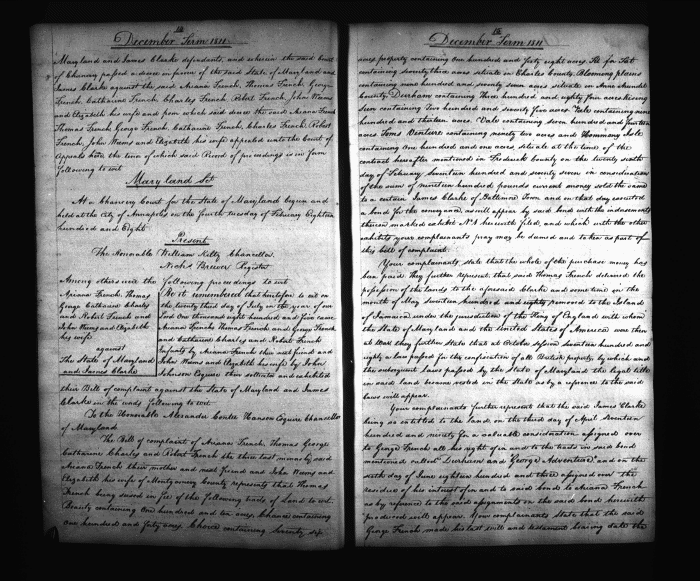 December Term 1811
Maryland and James Clarke defendants, and wherein the said Court
of Chancery passed a decree in favour of the said State of Maryland and
James Clarke against the said Ariana French, Thomas French, George
French, Catharine French, Charles French Robert French, John Weems
and Elizabeth his wife and from which said decree the said Ariana French
Thomas French, George French, Catharine French, Charles French, Robert
French, John Weems and Elizabeth his wife appealed unto the Court of
Appeals here the tenor of which said Record of proceedings is in form
following to wit
Maryland Sct
At a Chancery Court for the State of Maryland begun and
held at the City of Annapolis on the fourth tuesday of February Eighteen
hundred and Eight
Present
The Honorable William Kilty Chancellor
Nichs Brewer Register
Among others were the following proceedings to wit
Ariana French, Thomas
George Catharine Charles
and Robert French and
John Weems and Elizabeth
his wife
against
The State of Maryland
and James Clarke
Be it remembered that heretofore to wit on
the twenty third day of July in the year of our
Lord One thousand eight hundred and five came
Ariana French Thomas French and George French
and Catharine Charles and Robert French
Infants by Ariana French their next friend and
John Weems and Elizabeth his wife by John
Johnson Esquire their solicitor and exhibited
their Bill of complaint against the State of Maryland and James
Clarke in the words following to wit
To the Honorable Alexander Contee Hanson Esquire Chancellor
of Maryland
The Bill of complaint of Ariana French, Thomas George
Catharine Charles and Robert French the three last minors by said
Ariana French their mother and next friend and John Weems and
Elizabeth his wife of Montgomery County represents that Thomas
French being seized in fee of the following tracts of Land to wit
Beauty containing One hundred and ten acres, Chance containing
one hundred and forty acres, Choice containing Seventy six
December Term 1811
acres property containing One hundred and forty eight acres Tit for Tat
containing seventy three acres situate in Charles County, Blooming plains
containing nine hundred and seventy seven acres situate in Anne Arundel
County Durham containing Three hundred and eighty four acres
containing Two hundred and seventy five acres Vale containing nine
hundred and thirteen acres Vale containing seven hundred and fourteen
acres Toms Venture containing ninety two acres and Hommony Hole
containing One hundred and one acres, situate at the time of the
contract hereafter mentioned in Frederick County on the twenty sixth
day of February seventeen hundred and seventy seven in consideration
of the sum of nineteen hundred pounds current money sold the same
to a certain James Clarke of Baltimore Town and on that day executed
a bond for the conveyance, as will appear by said bond with the indorsements
thereon marked exhibit No 1 herewith filed, and which with the other
exhibits your complainants pray may be deemed and taken as part of
this bill of complaint.
Your complainants state that the whole of the purchase money has
been paid They further represent that said Thomas French delivered the
possession of the lands to the aforesaid Clarke and some time in the
month of May seventeen hundred and eighty removed to the Island
of Jamaica under the jurisdiction of the King of England with whom
the State of Maryland and the United States of America were then
at War they further state that at October session seventeen hundred and
eighty a law passed for the confiscation of all British property, by which and
the subsequent laws passed by the State of Maryland the legal title
in said land became vested in the State as by a reference to the said
laws will appear.
Your complainants further represent that the said James Clarke
being so entitled to the land on the third day of April seventeen
hundred and ninety for a valuable consideration assigned over
to George French all his right of in and to the lands in said bond
mentioned called "Durham and George Adventure" and on the
sixth day of June eighteen hundred and three assigned over the
residue of his interest of in and to said bond to Ariana French
as by reference to the said assignments on the said bond herewith
produced will appear. Your complainants state that the said
George French made his last will and testament bearing date the